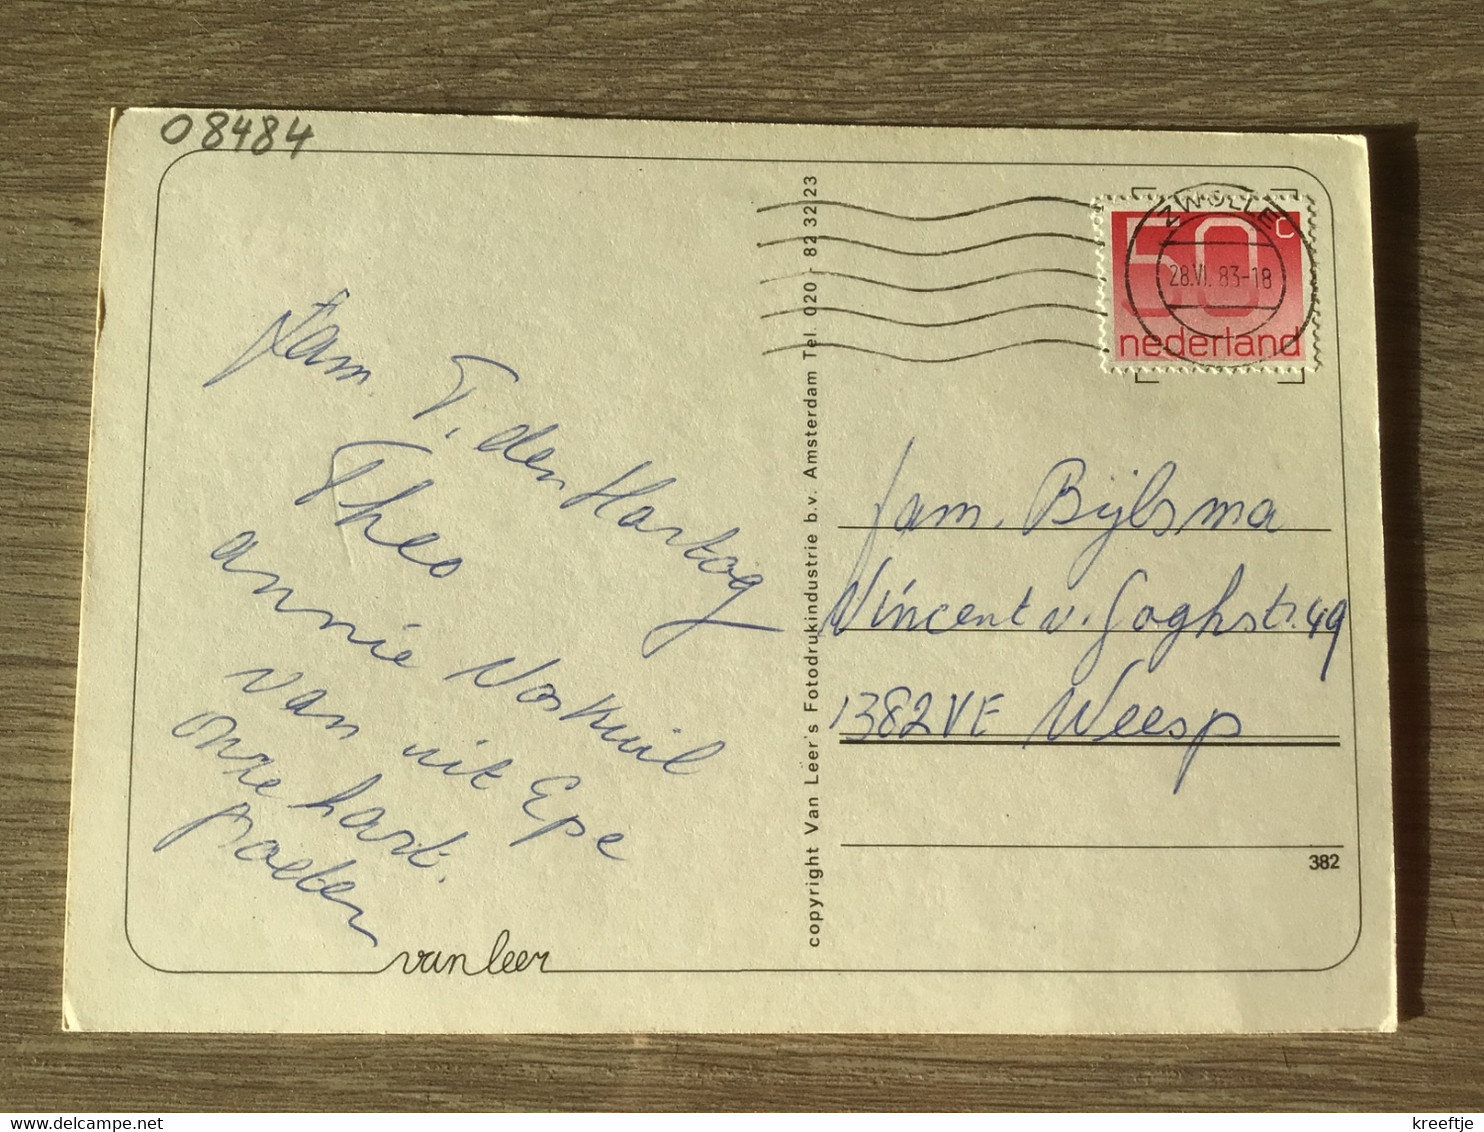 08484
fam. T. den Hartog
Theo
annie Voskuil
van uit Epe
onze hart.
groeten
van leer
copyright Van Leer's Fotodrukindustrie b.v. Amsterdam Tel. 020 - 82 32 23
ZWOLLE
28.VI. 83-18
50 c
nederland
fam. Bijlsma
Vincent v. Goghstr. 49
1382VE Weesp
382
kreeftje